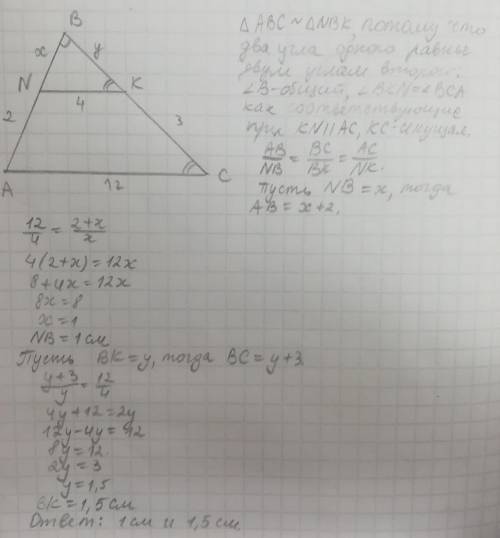 B
x
y
N
K
4
2
3
A
12
C
△ABC ~ △NBK, потому что
два угла одного равны
двум углам второго:
∠B-общий, ∠BKN=∠BCA
как соответствующие
при KN||AC, KC-секущая.
AB/NB = BC/BK = AC/NK.
Пусть NB = x, тогда
AB = x+2.
12/4 = 2+x/x
4(2+x)=12x
8+4x=12x
8x=8
x=1
NB=1см
Пусть BK=y, тогда BC=y+3.
y+3/y = 12/4
4y+12=2y
12y-4y=12
8y=12
2y=3
y=1,5
BK=1,5см
Ответ: 1см и 1,5см